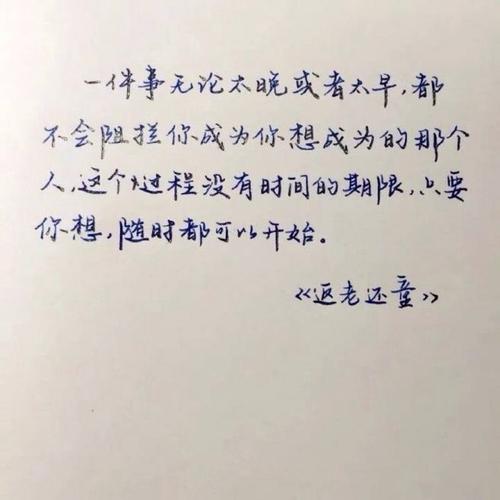 一件事无论太晚或者太早,都
不会阻拦你成为你想成为的那个
人,这个过程没有时间的期限,只要
你想,随时都可以开始。
《返老还童》